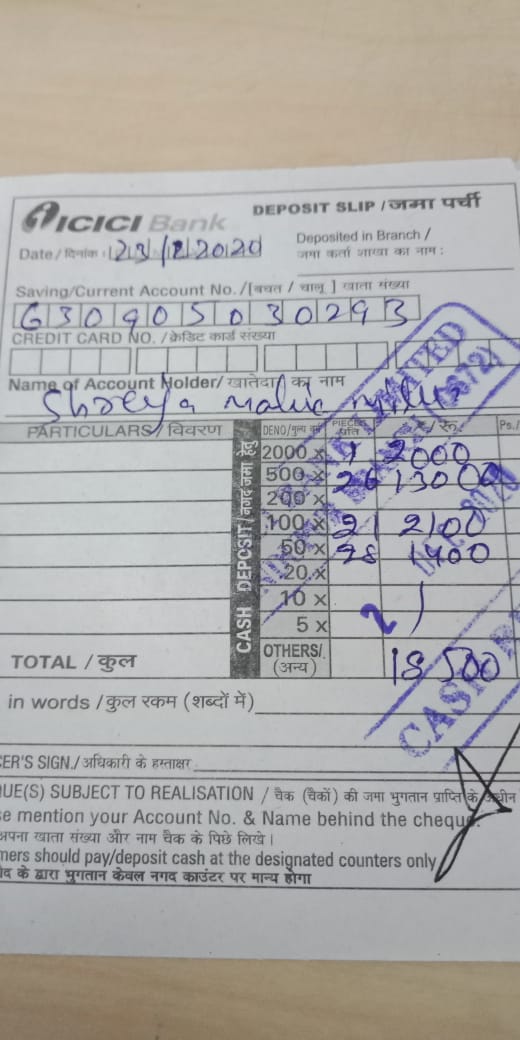 ICICI Bank
DEPOSIT SLIP / जमा पर्ची
Date / दिनांक : 23/12/2020
Deposited in Branch /
जमा कर्ता शाखा का नाम :
Saving/Current Account No. /[बचत / चालू ] खाता संख्या
630905030293
CREDIT CARD NO. /क्रेडिट कार्ड संख्या
Name of Account Holder/ खातेदार का नाम
Shreya
PARTICULARS / विवरण DENO/मूल्य वर्ग PIECES/प्रति रू. Ps./
CASH DEPOSIT/नगद जमा हेतु
2000 x 1 2000
500 x 26 13000
200 x
100 x 21 2100
50 x 28 1400
20 x
10 x
5 x
TOTAL / कुल OTHERS/ (अन्य) 18500
in words /कुल रकम (शब्दों में)
CER'S SIGN./ अधिकारी के हस्ताक्षर
QUE(S) SUBJECT TO REALISATION / चैक (चैकों) की जमा भुगतान प्राप्ति के अधीन
se mention your Account No. & Name behind the cheque.
अपना खाता संख्या और नाम चैक के पिछे लिखे।
mers should pay/deposit cash at the designated counters only
द के द्वारा भुगतान केवल नगद काउंटर पर मान्य होगा